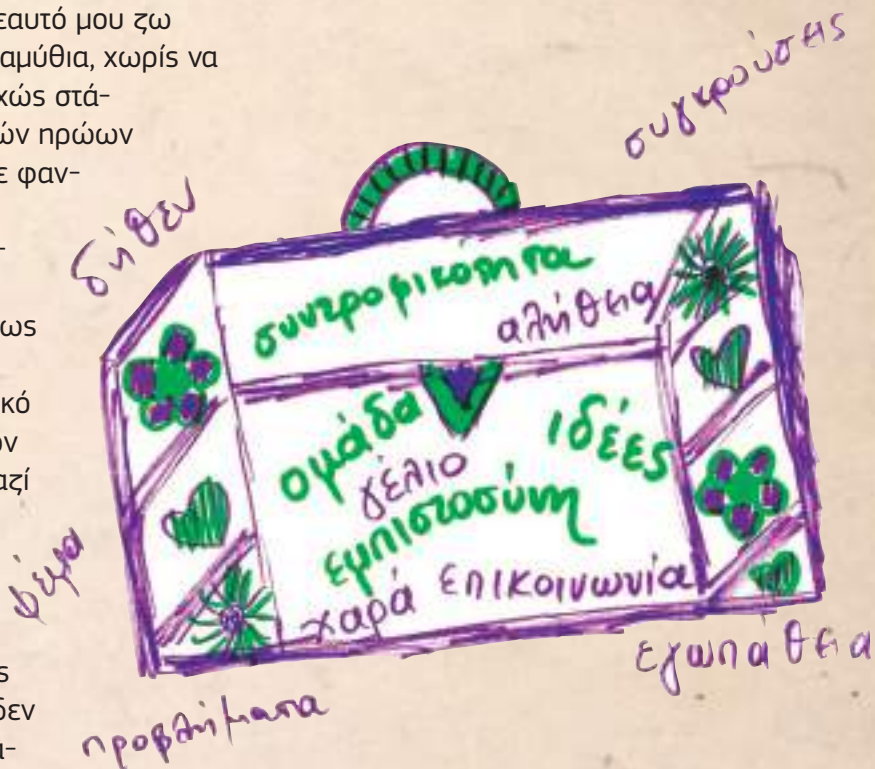 εαυτό μου ζω
αμύθια, χωρίς να
χώς στά-
ών ηρώων
ε φαν-
-
ως
κό
ών
αζί
ς
δεν
ά-
συγκρούσεις
δήθεν
συντροφικότητα
αλήθεια
ομάδα
ιδέες
γέλιο
εμπιστοσύνη
χαρά επικοινωνία
ψέμα
εγωπάθεια
προβλήματα